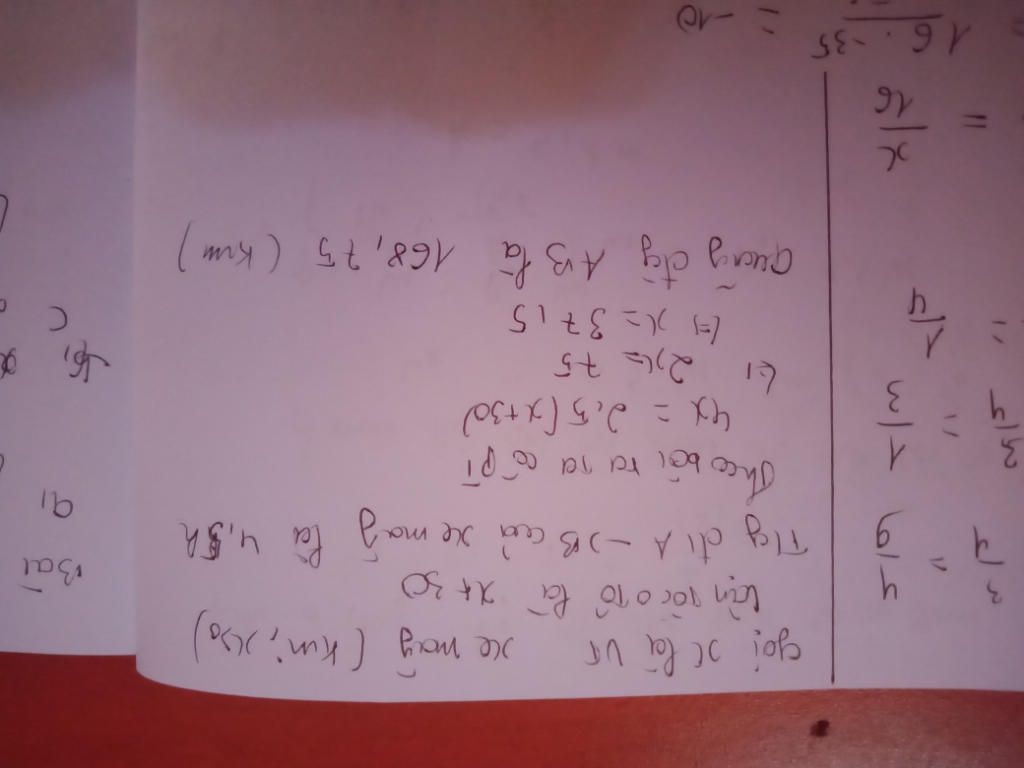 gọi x là vt xe máy (km; x>0)
vận tốc ô tô là x+30
Tlg đi A → B của xe máy là 4,5h
Theo bài ra ta có pt
4x = 2,5(x+30)
(=) 2x = 75
(=) x = 37,5
Quãng đg AB là 168,75 (km)
3
4
=
4
9
3
4
=
1
3
=
1
4
x
16
=
16 . -35
= -10
Bài
a,
b, x
c